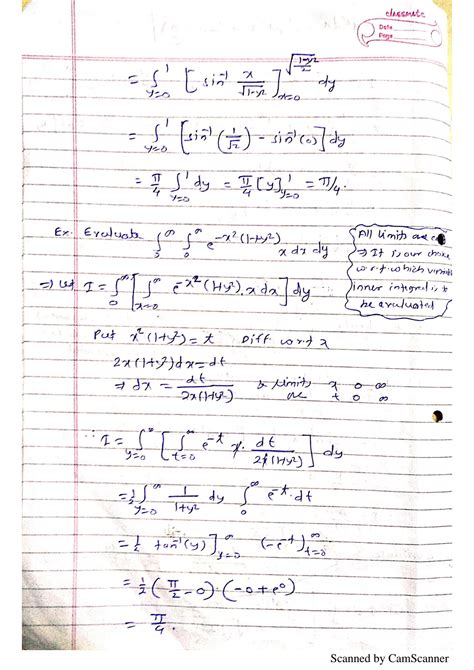 classmate
Date
Page
= ∫_{y=0}^{1} [ sin⁻¹ x/√(1-y²) ]_{x=0}^{√((1-y²)/2)} dy
= ∫_{y=0}^{1} [ sin⁻¹ (1/√2) - sin⁻¹ (0) ] dy
= π/4 ∫_{y=0}^{1} dy = π/4 [y]_{y=0}^{1} = π/4.
Ex. Evaluate ∫_0^∞ ∫_0^∞ e^{-x²(1+y²)} x dx dy
All limits are
⇒ It is our choice
w.r.t. which variable
inner integral is to
be evaluated
⇒ Let I = ∫_0^∞ [ ∫_{x=0}^∞ e^{-x²(1+y²)} . x dx ] dy
Put x²(1+y²) = t Diff w.r.t x
2x(1+y²) dx = dt
⇒ dx = dt/2x(1+y²) & limits x 0 ∞
are t 0 ∞
∴ I = ∫_{y=0}^∞ [ ∫_{t=0}^∞ e^{-t} x . dt/2x(1+y²) ] dy
= ½ ∫_{y=0}^∞ 1/1+y² dy ∫_0^∞ e^{-t} . dt
= ½ tan⁻¹(y) ]_{y=0}^∞ (-e^{-t})_{t=0}^∞
= ½ ( π/2 - 0 ) . (-0 + e⁰)
= π/4.
Scanned by CamScanner